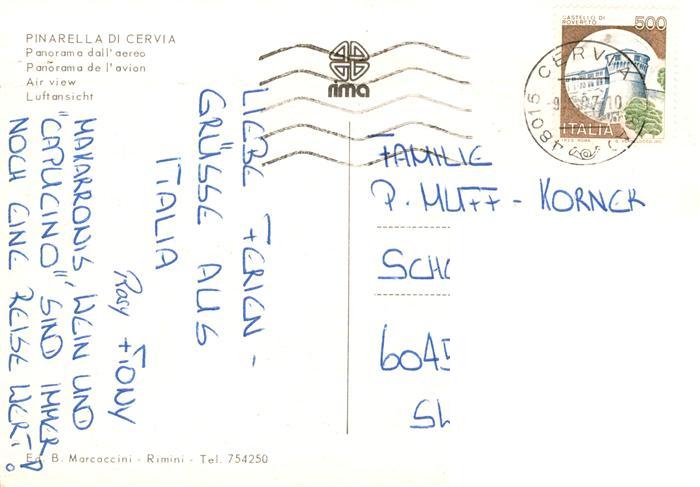 PINARELLA DI CERVIA
Panorama dall'aereo
Panorama de l'avion
Air view
Luftansicht
rima
CASTELLO DI
ROVERETO
500
ITALIA
48015 CERVIA
LIEBE FERIEN-
GRÜSSE AUS
ITALIA
Rosy + TONY
MAKARRONIS, WEIN UND
"CAPUCINO" SIND IMMER
NOCH EINE REISE WERT!
FAMILIE
P. MUFF - KORNER
SCH
6045
Ed. B. Marcaccini - Rimini - Tel. 754250